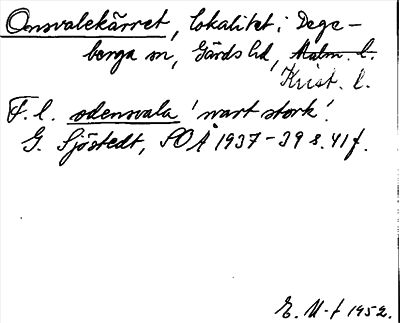 Onsvalekärret, lokalitet i Dege-
berga sn, Gärds hd, Malm. l.
Krist. l.
F. l. odensvala 'svart stork'.
G. Sjöstedt, SOÅ 1937-39 s. 41 f.
E. M-f 1952.